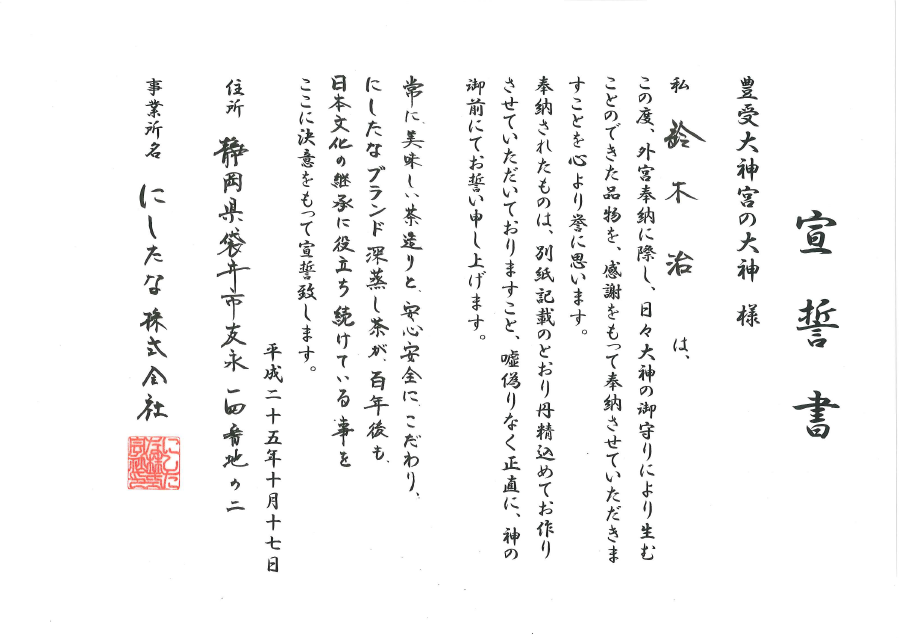 宣誓書
豊受大神宮の大神 様
私 鈴木 治 は、
この度、外宮奉納に際し、日々大神の御守りにより生む
ことのできた品物を、感謝をもって奉納させていただきま
すことを心より誉に思います。
奉納されたものは、別紙記載のとおり丹精込めてお作り
させていただいておりますこと、嘘偽りなく正直に、神の
御前にてお誓い申し上げます。
常に、美味しい茶造りと、安心安全に、こだわり、
にしたなブランド深蒸し茶が、百年後も、
日本文化の継承に役立ち続けている事を
ここに決意をもって宣誓致します。
平成二十五年十月十七日
住所 静岡県袋井市友永一四番地の二
事業所名 にしたな株式会社